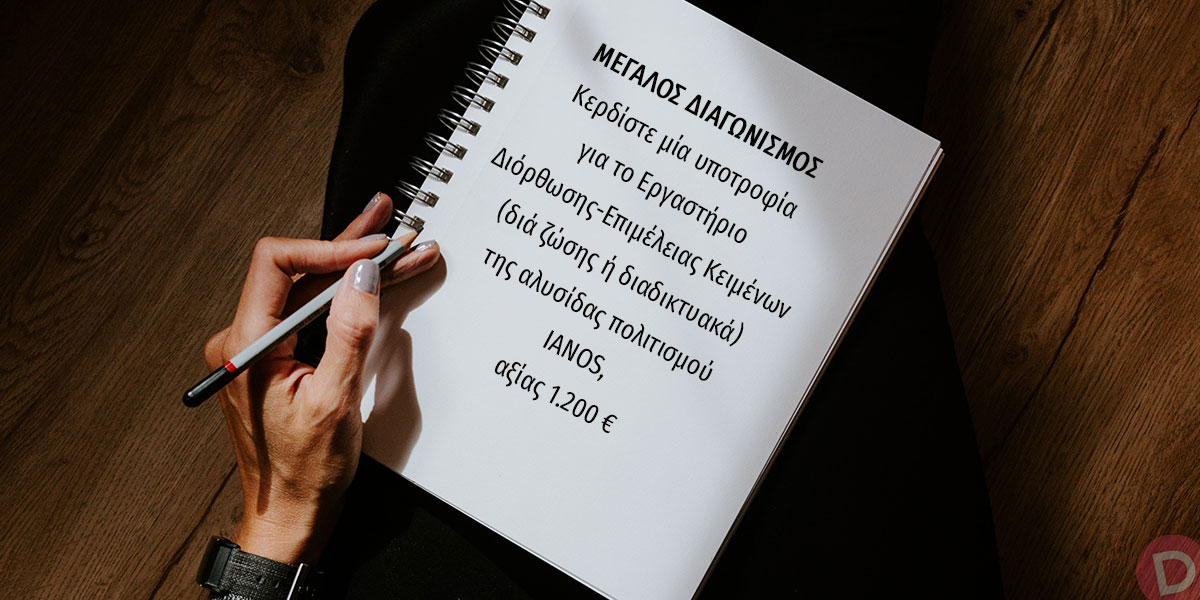 ΜΕΓΑΛΟΣ ΔΙΑΓΩΝΙΣΜΟΣ
Κερδίστε μία υποτροφία
για το Εργαστήριο
Διόρθωσης-Επιμέλειας Κειμένων
(διά ζώσης ή διαδικτυακά)
της αλυσίδας πολιτισμού
IANOS,
αξίας 1.200 €
D